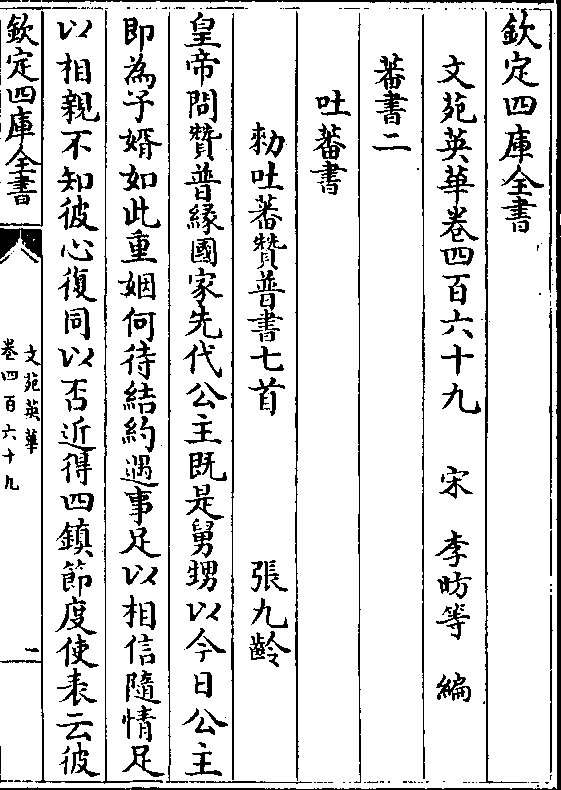 欽定四庫全書
文苑英華卷四百六十九 宋 李昉等 編
蕃書二
吐蕃書
勑吐蕃贊普書七首 張九齡
皇帝問贊普緣國家先代公主既是舅甥以今日公主
即為子婿如此重姻何待結約遇事足以相信隨情足
以相親不知彼心復同以否近得四鎮節度使表云彼
欽定四庫全書
文苑英華
卷四百六十九
二